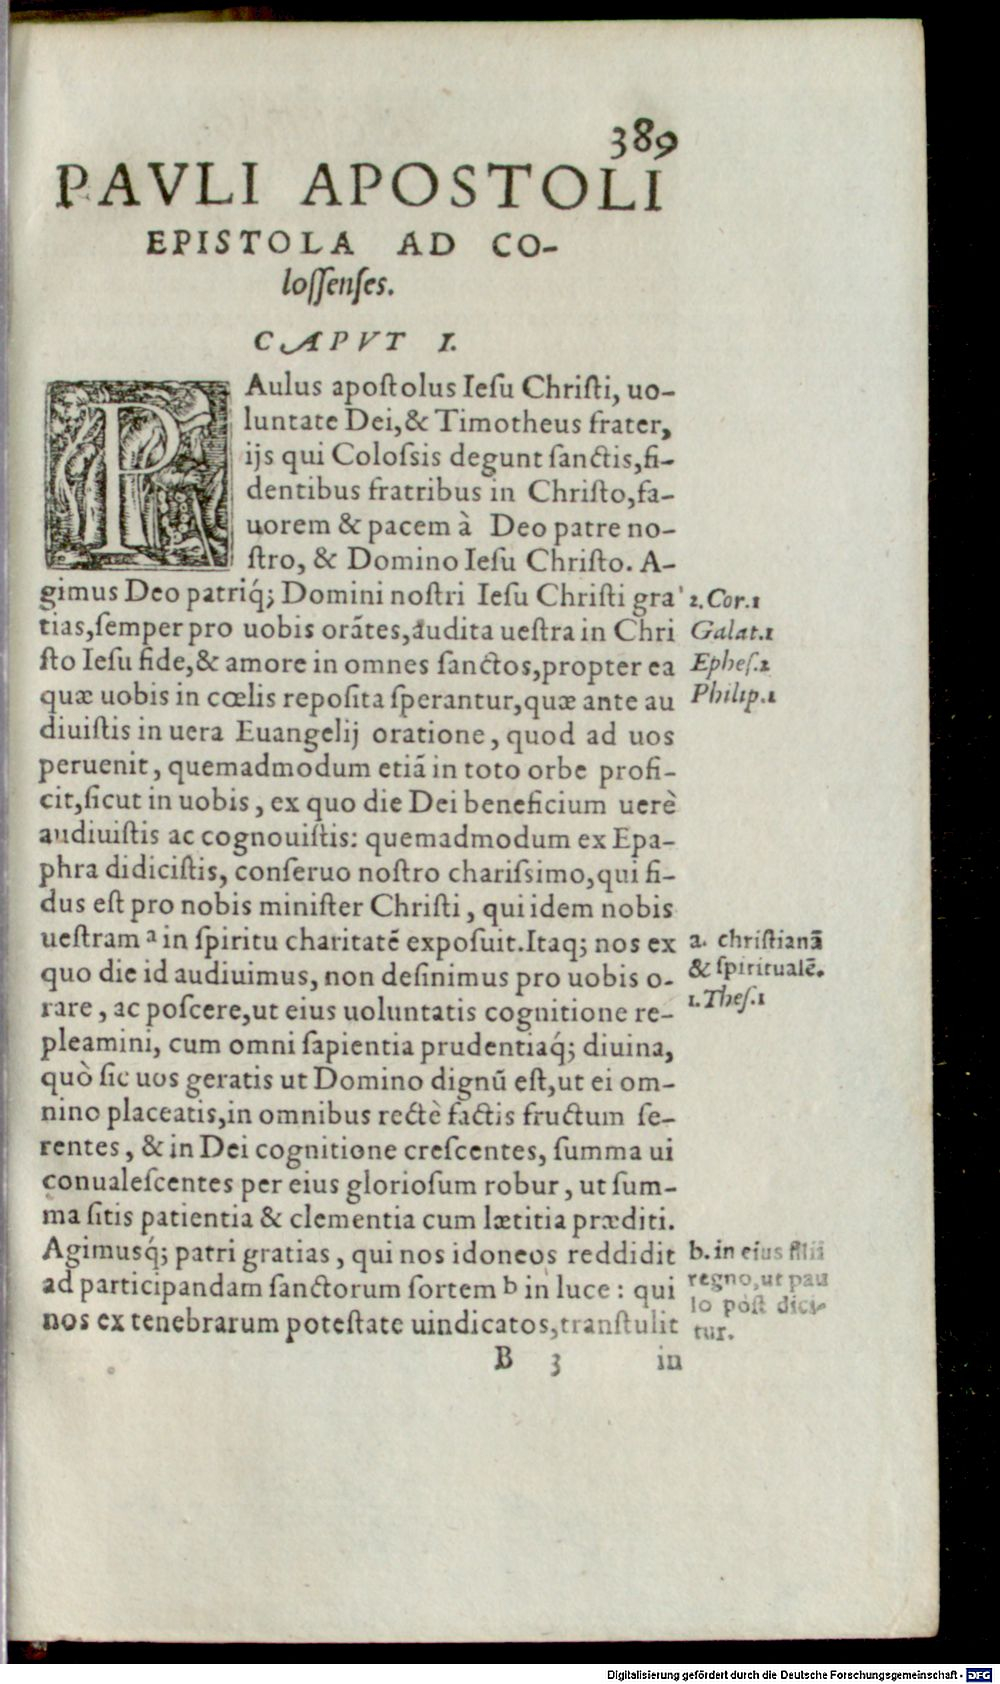 389
PAVLI APOSTOLI
EPISTOLA AD CO-
loſſenſes.
CAPVT I.
PAulus apoſtolus Ieſu Chriſti, uo-
luntate Dei, & Timotheus frater,
ijs qui Coloſsis degunt ſanctis, fi-
dentibus fratribus in Chriſto, fa-
uorem & pacem à Deo patre no-
ſtro, & Domino Ieſu Chriſto. A-
gimus Deo patriq́; Domini noſtri Ieſu Chriſti gra
tias, ſemper pro uobis orãtes, audita ueſtra in Chri
ſto Ieſu fide, & amore in omnes ſanctos, propter ea
quæ uobis in cœlis repoſita ſperantur, quæ ante au
diuiſtis in uera Euangelij oratione, quod ad uos
peruenit, quemadmodum etiã in toto orbe profi-
cit, ſicut in uobis, ex quo die Dei beneficium uerè
audiuiſtis ac cognouiſtis: quemadmodum ex Epa-
phra didiciſtis, conſeruo noſtro chariſsimo, qui fi-
dus eſt pro nobis miniſter Chriſti, qui idem nobis
ueſtram ᵃ in ſpiritu charitatẽ expoſuit. Itaq; nos ex
quo die id audiuimus, non deſinimus pro uobis o-
rare, ac poſcere, ut eius uoluntatis cognitione re-
pleamini, cum omni ſapientia prudentiaq́; diuina,
quò ſic uos geratis ut Domino dignũ eſt, ut ei om-
nino placeatis, in omnibus rectè factis fructum fe-
rentes, & in Dei cognitione creſcentes, ſumma ui
conualeſcentes per eius glorioſum robur, ut ſum-
ma ſitis patientia & clementia cum lætitia præditi.
Agimusq́; patri gratias, qui nos idoneos reddidit
ad participandam ſanctorum ſortem ᵇ in luce: qui
nos ex tenebrarum poteſtate uindicatos, tranſtulit
B 3 in
2. Cor.1
Galat.1
Epheſ.1
Philip.1
a. chriſtianã
& ſpiritualẽ.
1. Theſ.1
b. in eius filii
regno, ut pau
lo pòſt dici-
tur.
Digitalisierung gefördert durch die Deutsche Forschungsgemeinschaft - DFG